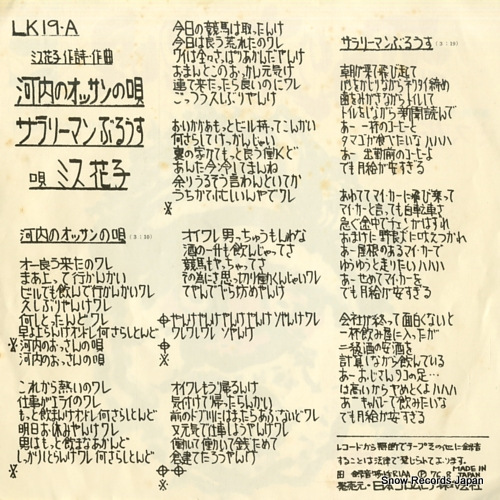 LK19-A
ミス花子・作詩・作曲
河内のオッサンの唄
サラリーマンぶるうす
唄 ミス花子
河内のオッサンの唄 (3:10)
オー良う来たのワレ
まあ上って行かんかい
ビールでも飲んで行かんかいワレ
久しぶりやんけワレ
何しとったんどワレ
早よ上らんけオドレ何さらしとんど
※河内のおっさんの唄
河内のおっさんの唄
これから熱いのワレ
仕事がエライのワレ
もっと飲まんけオドレ何さらしとんど
明日お休みやんけワレ
男はもっと飲まなあかんど
しっかりとらんけワレ何さらしとんど
※
今日の競馬は取ったんけ
今日は良う荒れたのワレ
ワイは全々さっぱりあかんたやんけ
おまんとこのおっかん元気け
連て来たったら良いのにワレ
ごっつう久しぶりやんけ
おいかかあもっとビール持ってこんかい
何さらしてけっかんじゃい
裏の子かてもっと良う働くど
あんた今冷してまんね
余りうるそう言わんといてか
うちかて忙しいんやでワレ
※
オイワレ男っちゅうもんわな
酒の一升も飲んじゃってさ
競馬もやっちゃってさ
その為にさ思っ切り働くんじゃいワレ
てやんでべらぼうめやんけ
やんけやんけやんけやんけ そやんけワレ
ワレワレワレ そやんけ
※
オイワレもう帰るんけ
気付けて帰ったらんかい
前のドブ川にはまったらあぶないどワレ
又元気で仕事しようやんけワレ
働いて働いて銭ためて
倉建てたろうやんけ
※
サラリーマンぶるうす (3:19)
朝が来て飛び起て
パンをかじりながらネクタイ締め
歯をみがきながらトイレ行って
トイレをしながら新聞読んで
あー 一杯のコーヒーと
タマゴが食べたいなハハハ
あー 出勤前のコーヒーよ
でも月給が安すぎる
あわててマイ・カーに飛び乗って
マイ・カーと言っても自転車さ
急ぐ途中でチェンがはずれ
おまけに野良犬に吠えつかれ
あー 屋根のあるマイ・カーで
ゆうゆうと走りたいハハハ
あー せめてマイ・カーを
でも月給が安すぎる
会社が終って面白くないと
一杯飲み屋に入ったが
二級酒の安酒を
計算しながら飲んでいる
あー おじさんタコの足…
は高いからやめとくよハハハ
あー キャバレーで飲みたいな
でも月給が安すぎる
レコードから無断でテープその他に録音
することは法律で禁じられております。
MADE IN JAPAN
発売元・日本コロムビア株式会社
Snow Records Japan